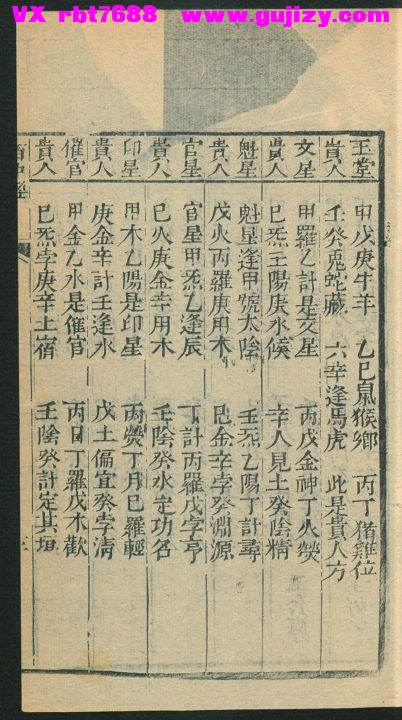 VX rbt7688 www.gujizy.com
玉堂 甲戊庚牛羊 乙己鼠猴鄉 丙丁猪雞位
貴人 壬癸兎蛇藏 六辛逢馬虎 此是貴人方
文星 甲羅乙計是文星 丙戊金神丁火熒
貴人 己炁壬陽庚水候 辛人見土癸陰精
魁星 魁星逢甲號太陰 壬炁乙陽丁計尋
貴人 戊火丙羅庚用木 己金辛孛癸淵源
官星 官星甲炁乙逢辰 丁計丙羅戊孛亨
貴人 己火庚金辛用木 壬陰癸水定功名
印星 甲木乙陽是印星 丙熒丁月己羅輕
貴人 庚金辛計壬逢水 戊土偏宜癸孛清
催官 甲金乙水是催官 丙日丁羅戊木歡
貴人 己炁孛庚辛土宿 壬陰癸計定其垣